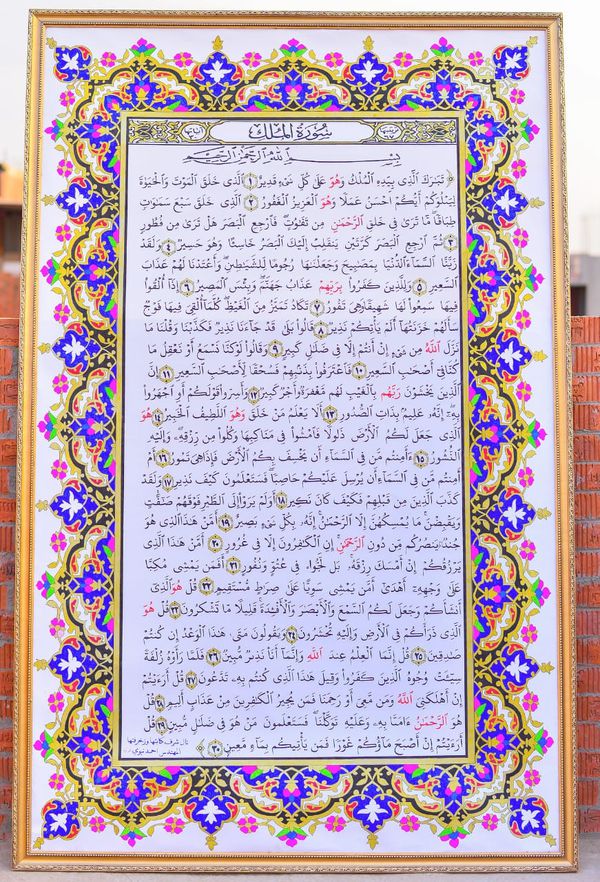 سُورَةُ الْمُلْكِ
بِسْمِ اللهِ الرَّحْمَٰنِ الرَّحِيمِ
تَبَٰرَكَ الَّذِى بِيَدِهِ الْمُلْكُ وَهُوَ عَلَىٰ كُلِّ شَىْءٍ قَدِيرٌ ١ الَّذِى خَلَقَ الْمَوْتَ وَالْحَيَوٰةَ
لِيَبْلُوَكُمْ أَيُّكُمْ أَحْسَنُ عَمَلًا وَهُوَ الْعَزِيزُ الْغَفُورُ ٢ الَّذِى خَلَقَ سَبْعَ سَمَٰوَٰتٍ
طِبَاقًا مَّا تَرَىٰ فِى خَلْقِ الرَّحْمَٰنِ مِن تَفَٰوُتٍ فَارْجِعِ الْبَصَرَ هَلْ تَرَىٰ مِن فُطُورٍ
٣ ثُمَّ ارْجِعِ الْبَصَرَ كَرَّتَيْنِ يَنقَلِبْ إِلَيْكَ الْبَصَرُ خَاسِئًا وَهُوَ حَسِيرٌ ٤ وَلَقَدْ
زَيَّنَّا السَّمَآءَ الدُّنْيَا بِمَصَٰبِيحَ وَجَعَلْنَٰهَا رُجُومًا لِّلشَّيَٰطِينِ وَأَعْتَدْنَا لَهُمْ عَذَابَ
السَّعِيرِ ٥ وَلِلَّذِينَ كَفَرُوا بِرَبِّهِمْ عَذَابُ جَهَنَّمَ وَبِئْسَ الْمَصِيرُ ٦ إِذَآ أُلْقُوا
فِيهَا سَمِعُوا لَهَا شَهِيقًا وَهِىَ تَفُورُ ٧ تَكَادُ تَمَيَّزُ مِنَ الْغَيْظِ كُلَّمَآ أُلْقِىَ فِيهَا فَوْجٌ
سَأَلَهُمْ خَزَنَتُهَآ أَلَمْ يَأْتِكُمْ نَذِيرٌ ٨ قَالُوا بَلَىٰ قَدْ جَآءَنَا نَذِيرٌ فَكَذَّبْنَا وَقُلْنَا مَا
نَزَّلَ اللَّهُ مِن شَىْءٍ إِنْ أَنتُمْ إِلَّا فِى ضَلَٰلٍ كَبِيرٍ ٩ وَقَالُوا لَوْ كُنَّا نَسْمَعُ أَوْ نَعْقِلُ مَا
كُنَّا فِىٓ أَصْحَٰبِ السَّعِيرِ ١٠ فَاعْتَرَفُوا بِذَنبِهِمْ فَسُحْقًا لِّأَصْحَٰبِ السَّعِيرِ ١١ إِنَّ
الَّذِينَ يَخْشَوْنَ رَبَّهُم بِالْغَيْبِ لَهُم مَّغْفِرَةٌ وَأَجْرٌ كَبِيرٌ ١٢ وَأَسِرُّوا قَوْلَكُمْ أَوِ اجْهَرُوا
بِهِۦٓ إِنَّهُۥ عَلِيمٌۢ بِذَاتِ الصُّدُورِ ١٣ أَلَا يَعْلَمُ مَنْ خَلَقَ وَهُوَ اللَّطِيفُ الْخَبِيرُ ١٤ هُوَ
الَّذِى جَعَلَ لَكُمُ الْأَرْضَ ذَلُولًا فَامْشُوا فِى مَنَاكِبِهَا وَكُلُوا مِن رِّزْقِهِۦ وَإِلَيْهِ
النُّشُورُ ١٥ ءَأَمِنتُم مَّن فِى السَّمَآءِ أَن يَخْسِفَ بِكُمُ الْأَرْضَ فَإِذَا هِىَ تَمُورُ ١٦ أَمْ
أَمِنتُم مَّن فِى السَّمَآءِ أَن يُرْسِلَ عَلَيْكُمْ حَاصِبًا فَسَتَعْلَمُونَ كَيْفَ نَذِيرِ ١٧ وَلَقَدْ
كَذَّبَ الَّذِينَ مِن قَبْلِهِمْ فَكَيْفَ كَانَ نَكِيرِ ١٨ أَوَلَمْ يَرَوْا إِلَى الطَّيْرِ فَوْقَهُمْ صَٰٓفَّٰتٍ
وَيَقْبِضْنَ مَا يُمْسِكُهُنَّ إِلَّا الرَّحْمَٰنُ إِنَّهُۥ بِكُلِّ شَىْءٍۭ بَصِيرٌ ١٩ أَمَّنْ هَٰذَا الَّذِى هُوَ
جُندٌ لَّكُمْ يَنصُرُكُم مِّن دُونِ الرَّحْمَٰنِ إِنِ الْكَٰفِرُونَ إِلَّا فِى غُرُورٍ ٢٠ أَمَّنْ هَٰذَا الَّذِى
يَرْزُقُكُمْ إِنْ أَمْسَكَ رِزْقَهُۥ بَل لَّجُّوا فِى عُتُوٍّ وَنُفُورٍ ٢١ أَفَمَن يَمْشِى مُكِبًّا
عَلَىٰ وَجْهِهِۦٓ أَهْدَىٰٓ أَمَّن يَمْشِى سَوِيًّا عَلَىٰ صِرَٰطٍ مُّسْتَقِيمٍ ٢٢ قُلْ هُوَ الَّذِىٓ
أَنشَأَكُمْ وَجَعَلَ لَكُمُ السَّمْعَ وَالْأَبْصَٰرَ وَالْأَفْـِٔدَةَ قَلِيلًا مَّا تَشْكُرُونَ ٢٣ قُلْ هُوَ
الَّذِى ذَرَأَكُمْ فِى الْأَرْضِ وَإِلَيْهِ تُحْشَرُونَ ٢٤ وَيَقُولُونَ مَتَىٰ هَٰذَا الْوَعْدُ إِن كُنتُمْ
صَٰدِقِينَ ٢٥ قُلْ إِنَّمَا الْعِلْمُ عِندَ اللَّهِ وَإِنَّمَآ أَنَا نَذِيرٌ مُّبِينٌ ٢٦ فَلَمَّا رَأَوْهُ زُلْفَةً
سِيٓـَٔتْ وُجُوهُ الَّذِينَ كَفَرُوا وَقِيلَ هَٰذَا الَّذِى كُنتُم بِهِۦ تَدَّعُونَ ٢٧ قُلْ أَرَءَيْتُمْ
إِنْ أَهْلَكَنِىَ اللَّهُ وَمَن مَّعِىَ أَوْ رَحِمَنَا فَمَن يُجِيرُ الْكَٰفِرِينَ مِنْ عَذَابٍ أَلِيمٍ ٢٨ قُلْ
هُوَ الرَّحْمَٰنُ ءَامَنَّا بِهِۦ وَعَلَيْهِ تَوَكَّلْنَا فَسَتَعْلَمُونَ مَنْ هُوَ فِى ضَلَٰلٍ مُّبِينٍ ٢٩ قُلْ
أَرَءَيْتُمْ إِنْ أَصْبَحَ مَآؤُكُمْ غَوْرًا فَمَن يَأْتِيكُم بِمَآءٍ مَّعِينٍۭ ٣٠
نال شرف كتابتها وزخرفتها
المهندس احمد نبوى